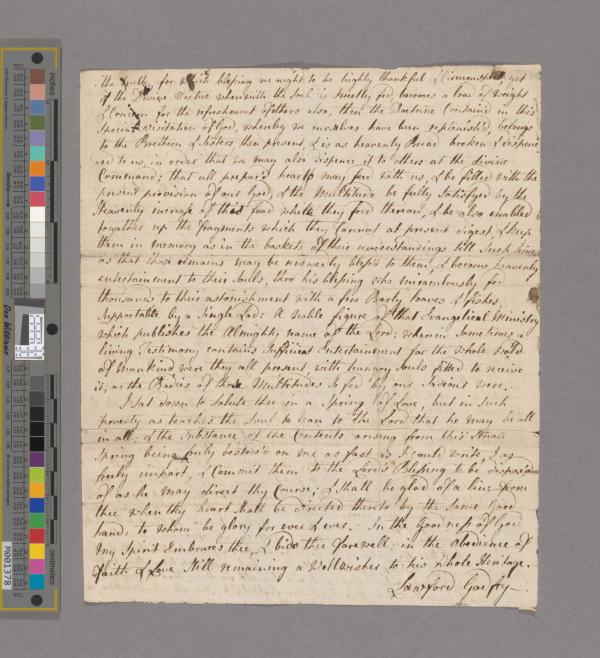 the truth, for which blessing we ought to be highly thankful & Circumspect, yet
if the Divine Vertue wherewith the Soul is sweetly fed, becomes a load of weight
& Concern for the refreshment of others also, then the Doctrine Contain'd in this
Special visitation of God, whereby we ourselves have been replenish'd, belongs
to the Brethren & Sisters then present, & is as heavenly Bread broken & dispenc
:ed to us, in order that we may also dispence it to others at the divine
Command; that all prepar'd hearts may feed with us, & be filled with the
present provision of our God, & the Multitude be fully Satisfyed by the
Heavenly increase of this food while they feed thereon, & be also enabled
together up the fragments which they Cannot at present digest & keep
them in memory as in the baskets of their understandings till Such time
as that those remains may be renewedly bless'd to them, & become heavenly
entertainment to their Souls, thro his blessing who miraculously fed
thousands to their astonishment with a few Barly loaves & fishes,
Supportable by a Single Lad: A noble figure of that Evangelical Ministry
which publishes the Almighty name of the Lord; wherein Sometimes a
living Testimony contains Sufficient Entertainment for the whole World
of Mankind were they all present, with hungry Souls fitted to receive
it, as the Bodies of those Multitudes So fed by our Saviour were.
I Sat down to Salute thee in a Spring of Love, but in Such
poverty as teaches the Soul to lean to the Lord that he may be all
in all; & the Substance of the Contents arising from this Small
Spring being only bestow'd on me as fast as I could write, I as
freely impart, & Commit them to the Lord's Blessing to be dispos'd
of as he may direct thy Course; & Shall be glad of a line from
thee when thy heart Shall be directed thereto by the Same Good
hand: to whom be glory for ever & ever. In the Goodness of God
My Spirit Embraces thee, & bids thee farewell; in the obedience of
faith & Love Still remaining a Wellwisher to his whole Heritage.
Lawford Godfry
inches
centimeters
Don Williams
M001378